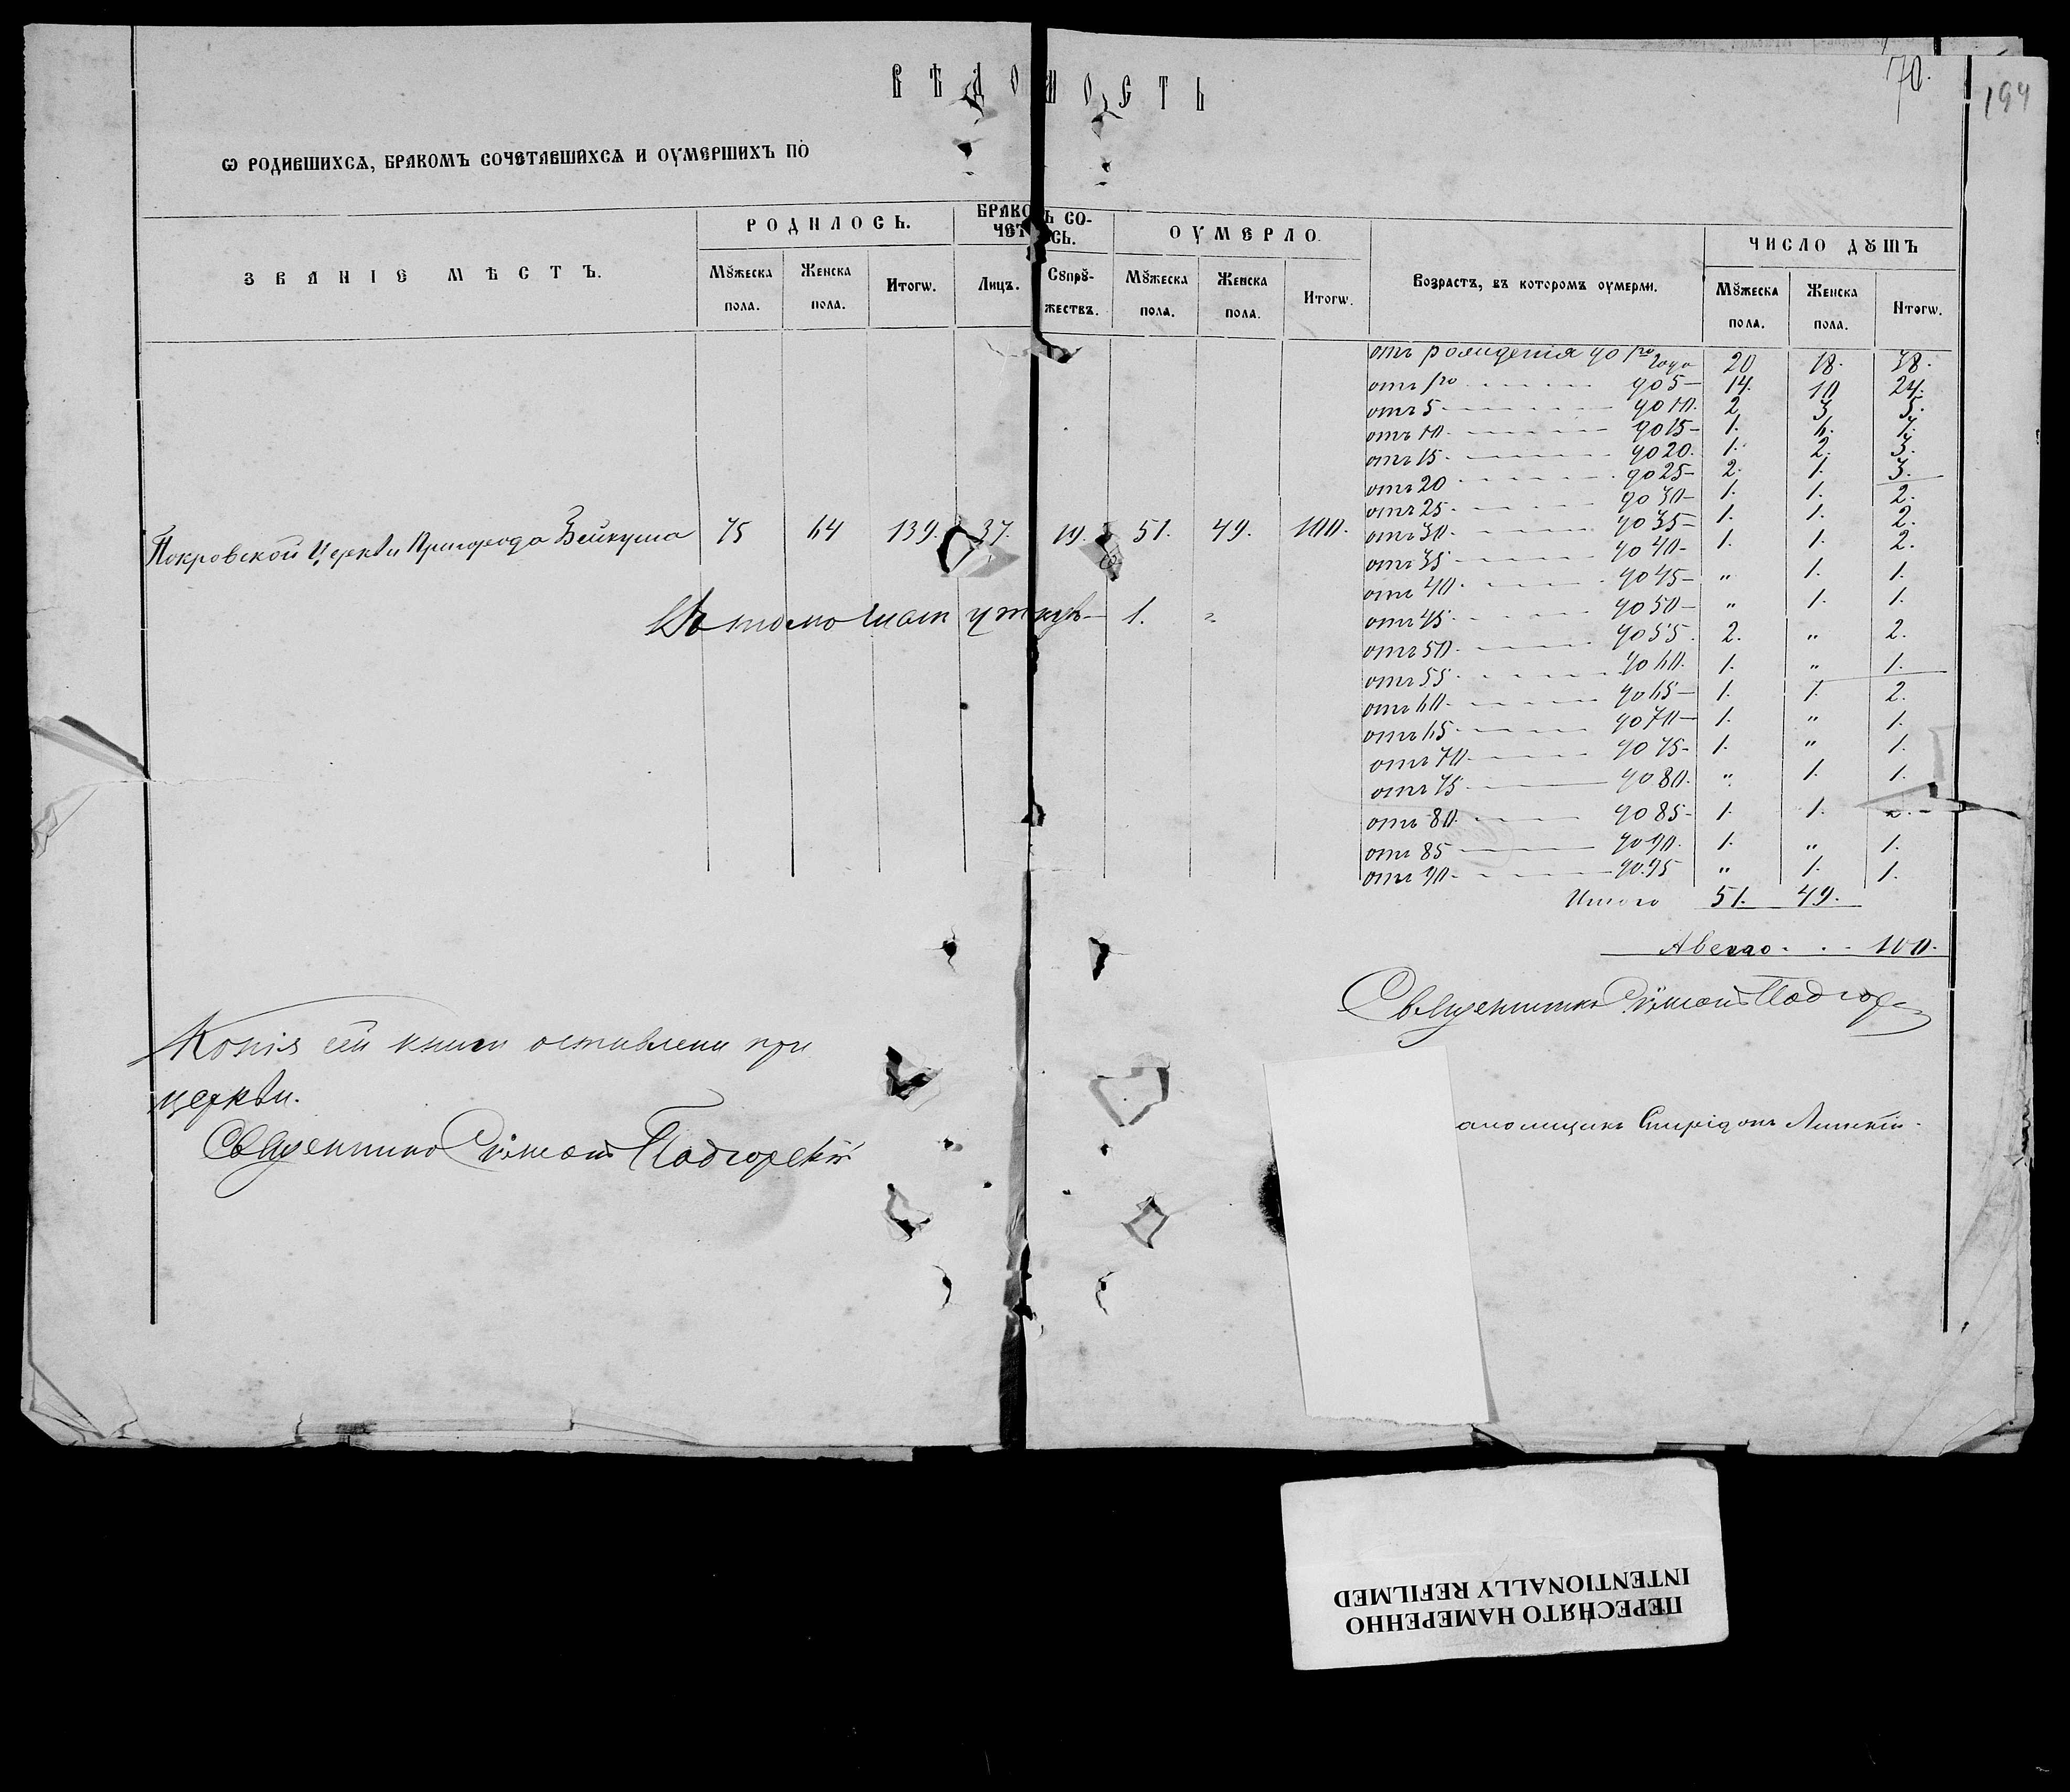 ВѢДОМОСТЬ
70.
194
Ѡ РОДИВШИХСѦ, БРАКОМЪ СОЧЕТАВШИХСѦ И ОУМЕРШИХЪ ПО
ЗВАНІЕ МѢСТЪ. РОДИЛОСЬ. БРАКОМЪ СО- ОУМЕРЛО. Возрастъ, въ которомъ оумерли. ЧИСЛО ДꙊШЪ
ЧЕТ СЬ.
Мꙋжеска Женска Итогѡ. Лицъ. Сꙋпрꙋ- Мꙋжеска Женска Итогѡ. Мꙋжеска Женска Итогѡ.
пола. пола. жествъ. пола. пола. пола. пола.
отъ рожденія до 1го года 20 18. 38.
отъ 1го до 5 14. 10 24.
отъ 5 до 10. 2 3 5.
отъ 10. до 15 1. 6. 7.
отъ 15. до 20. 1. 2. 3.
отъ 20 до 25 2. 1. 3.
отъ 25. до 30 1. 1. 2.
отъ 30. до 35 1. 1. 2.
отъ 35 до 40 1. 1. 2.
отъ 40. до 45 " 1. 1.
отъ 45. до 50 " 1. 1.
отъ 50. до 55. 2. " 2.
отъ 55. до 60. 1. " 1.
отъ 60. до 65 1. 1. 2.
отъ 65. до 70 1. " 1.
отъ 70. до 75 1. " 1.
отъ 75 до 80. " 1. 1.
отъ 80. до 85 1. 1. 2.
отъ 85 до 90. 1. " 1.
отъ 90. до 95 " 1. 1.
Покровской Церкви Пригорода Бейкуша 75 64 139. 37. 19. 51. 49. 100.
Въ томъ числѣ 1. "
Итого 51. 49.
А всего 100.
Священникъ Симеонъ Подгор
Копія сей книги оставлена при
церкви.
Священникъ Симеонъ Подгорскій
аломщикъ Спиридонъ
ПЕРЕСНЯТО НАМЕРЕННО
INTENTIONALLY REFILMED